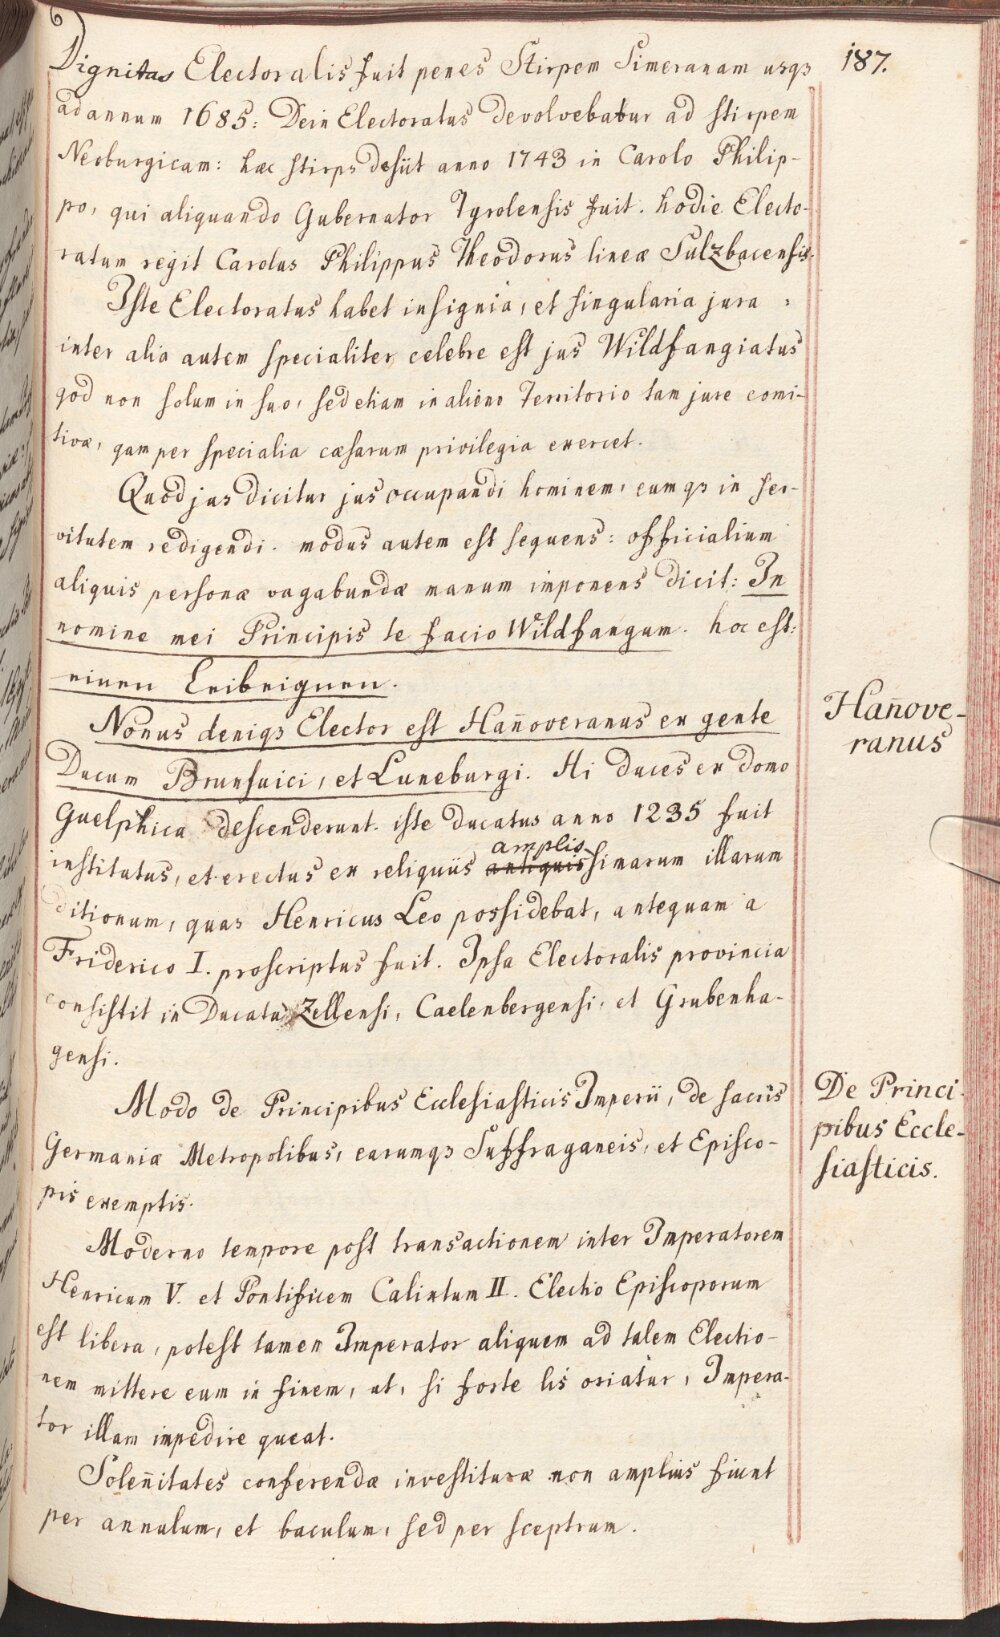 187.
Dignitas Electoralis fuit penes Stirpem Simeranam usqȝ
ad annum 1685: Dein Electoratus devolvebatur ad stirpem
Neoburgicam: hæc stirps desiit anno 1743 in Carolo Philip-
po, qui aliquando Gubernator Tyrolensis fuit. hodie Electo-
ratum regit Carolus Philippus Theodorus lineæ Sulzbacensis.
Iste Electoratus habet insignia, et singularia jura:
inter alia autem specialiter celebre est jus Wildfangiatus
qod non solum in suo, sed etiam in alieno Territorio tam jure comi-
tivæ, qam per specialia cæsarum privilegia exercet.
Quod jus dicitur jus occupandi hominem, eumqȝ in ser-
vitutem redigendi. modus autem est sequens: officialium
aliquis personæ vagabundæ manum imponens dicit: In
nomine mei Principis te facio Wildfangum. hoc est:
einen Leibeignen.
Nonus deniqȝ Elector est Hañoveranus ex gente
Ducum Brunsuici, et Luneburgi. Hi duces ex domo
Guelphica descenderunt. iste ducatus anno 1235 fuit
institutus, et erectus ex reliquiis antiquis amplissimarum illarum
ditionum, quas Henricus Leo possidebat, antequam a
Friderico I. proscriptus fuit. Ipsa Electoralis provincia
consistit in Ducatu Zellensi, Caelenbergensi, et Grubenha-
gensi.
Modo de Principibus Ecclesiasticis Imperii, de sacris
Germaniæ Metropolibus, earumqȝ Suffraganeis, et Episco-
pis exemptis.
Moderno tempore post transactionem inter Imperatorem
Henricum V. et Pontificem Calixtum II. Electio Episcoporum
est libera, potest tamen Imperator aliquem ad talem Electio-
nem mittere eum in finem, ut, si forte lis oriatur, Impera-
tor illam impedire queat.
Soleñitates conferendæ investituræ non amplius fiunt
per annulum, et baculum, sed per sceptrum.
Hañove-
ranus
De Princi-
pibus Eccle-
siasticis.